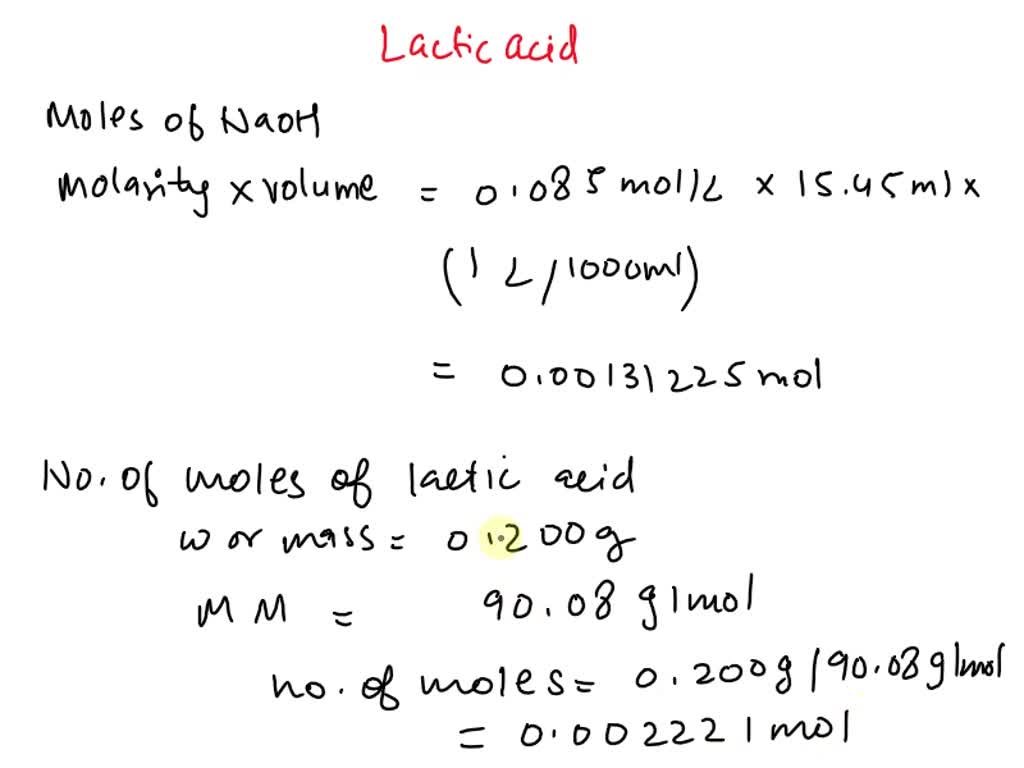 Lactic acid
Moles of NaOH
Molarity x volume = 0.085 mol/L x 15.45 ml x
(1 L/1000ml)
= 0.00131225 mol
No. of moles of lactic acid
w or mass = 0.200g
MM = 90.08 g/mol
no. of moles = 0.200g/90.08g/mol
= 0.002221 mol